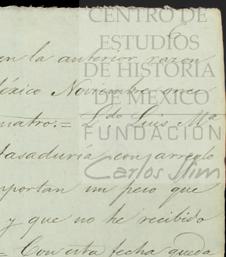 CENTRO DE
ESTUDIOS
DE HISTORIA
DE MÉXICO
FUNDACIÓN
Carlos Slim
en la anterior razon
México Noviembre once
cuatro.= Ldo Luis Ma
Tasaduría, con arreglo
importan un peso que
y que no he recibido
= Con esta fecha queda